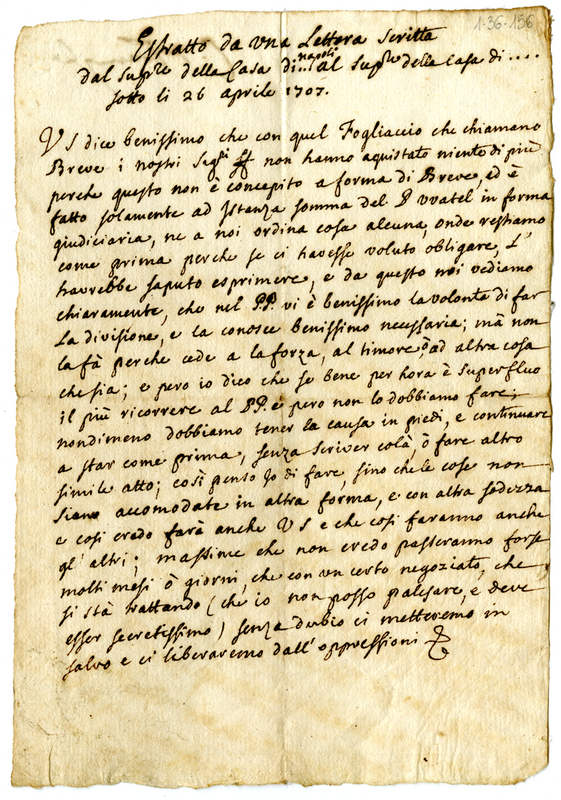 1-36-156
Estratto da una Lettera scritta
dal Supre della Casa di ... napoli al Supre della Casa di ....
sotto li 26 aprile 1707.
VS dice benissimo che con quel Fogliaccio che chiamano
Breve i nostri non hanno aquistato niente di più
perche questo non è concepito a forma di Breve, ed è
fatto solamente ad Istanza somma del P vvatel in forma
giudiciaria, ne a noi ordina cosa alcuna, onde restiamo
come prima perche se ci havesse voluto obligare, l'
havrebbe saputo esprimere, e da questo noi vediamo
chiaramente, che nel PP. vi è benissimo la volontà di far
la divisione, e la conosce benissimo necessaria; mà non
la fà perche cede a la forza, al timore, ò ad altra cosa
che sia; e pero io dico che se bene per hora è superfluo
il più ricorrere al PP. e pero non lo dobbiamo fare;
nondimeno dobbiamo tener la causa in piedi, e continuare
a star come prima, senza scriver colà, ò fare altro
simile atto; così penso Io di fare, sino che le cose non
siano accomodate in altra forma, e con altra sodezza
e cosi credo farà anche VS e che cosi faranno anche
gl'altri; massime che non credo passeranno forse
molti mesi ò giorni, che con un certo negoziato, che
si stà trattando (che io non posso palesare, e deve
esser secretissimo) senza dubio ci metteremo in
salvo e ci liberaremo dall'oppressioni